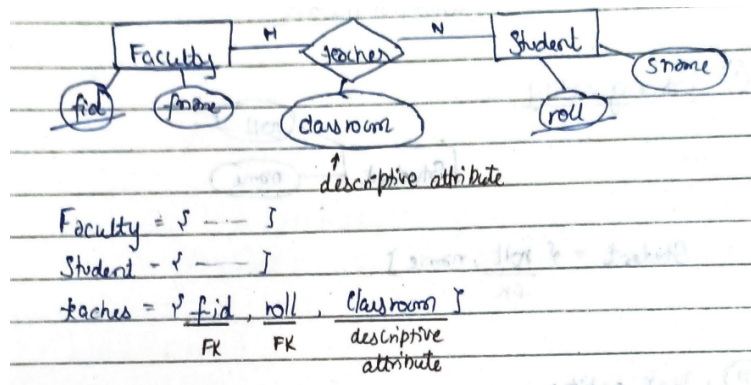 M N
Faculty teaches Student
fid fname roll sname
classroom
↑
descriptive attribute
Faculty = { --- }
Student - { --- }
teaches = { fid, roll, Classroom }
FK FK descriptive
attribute